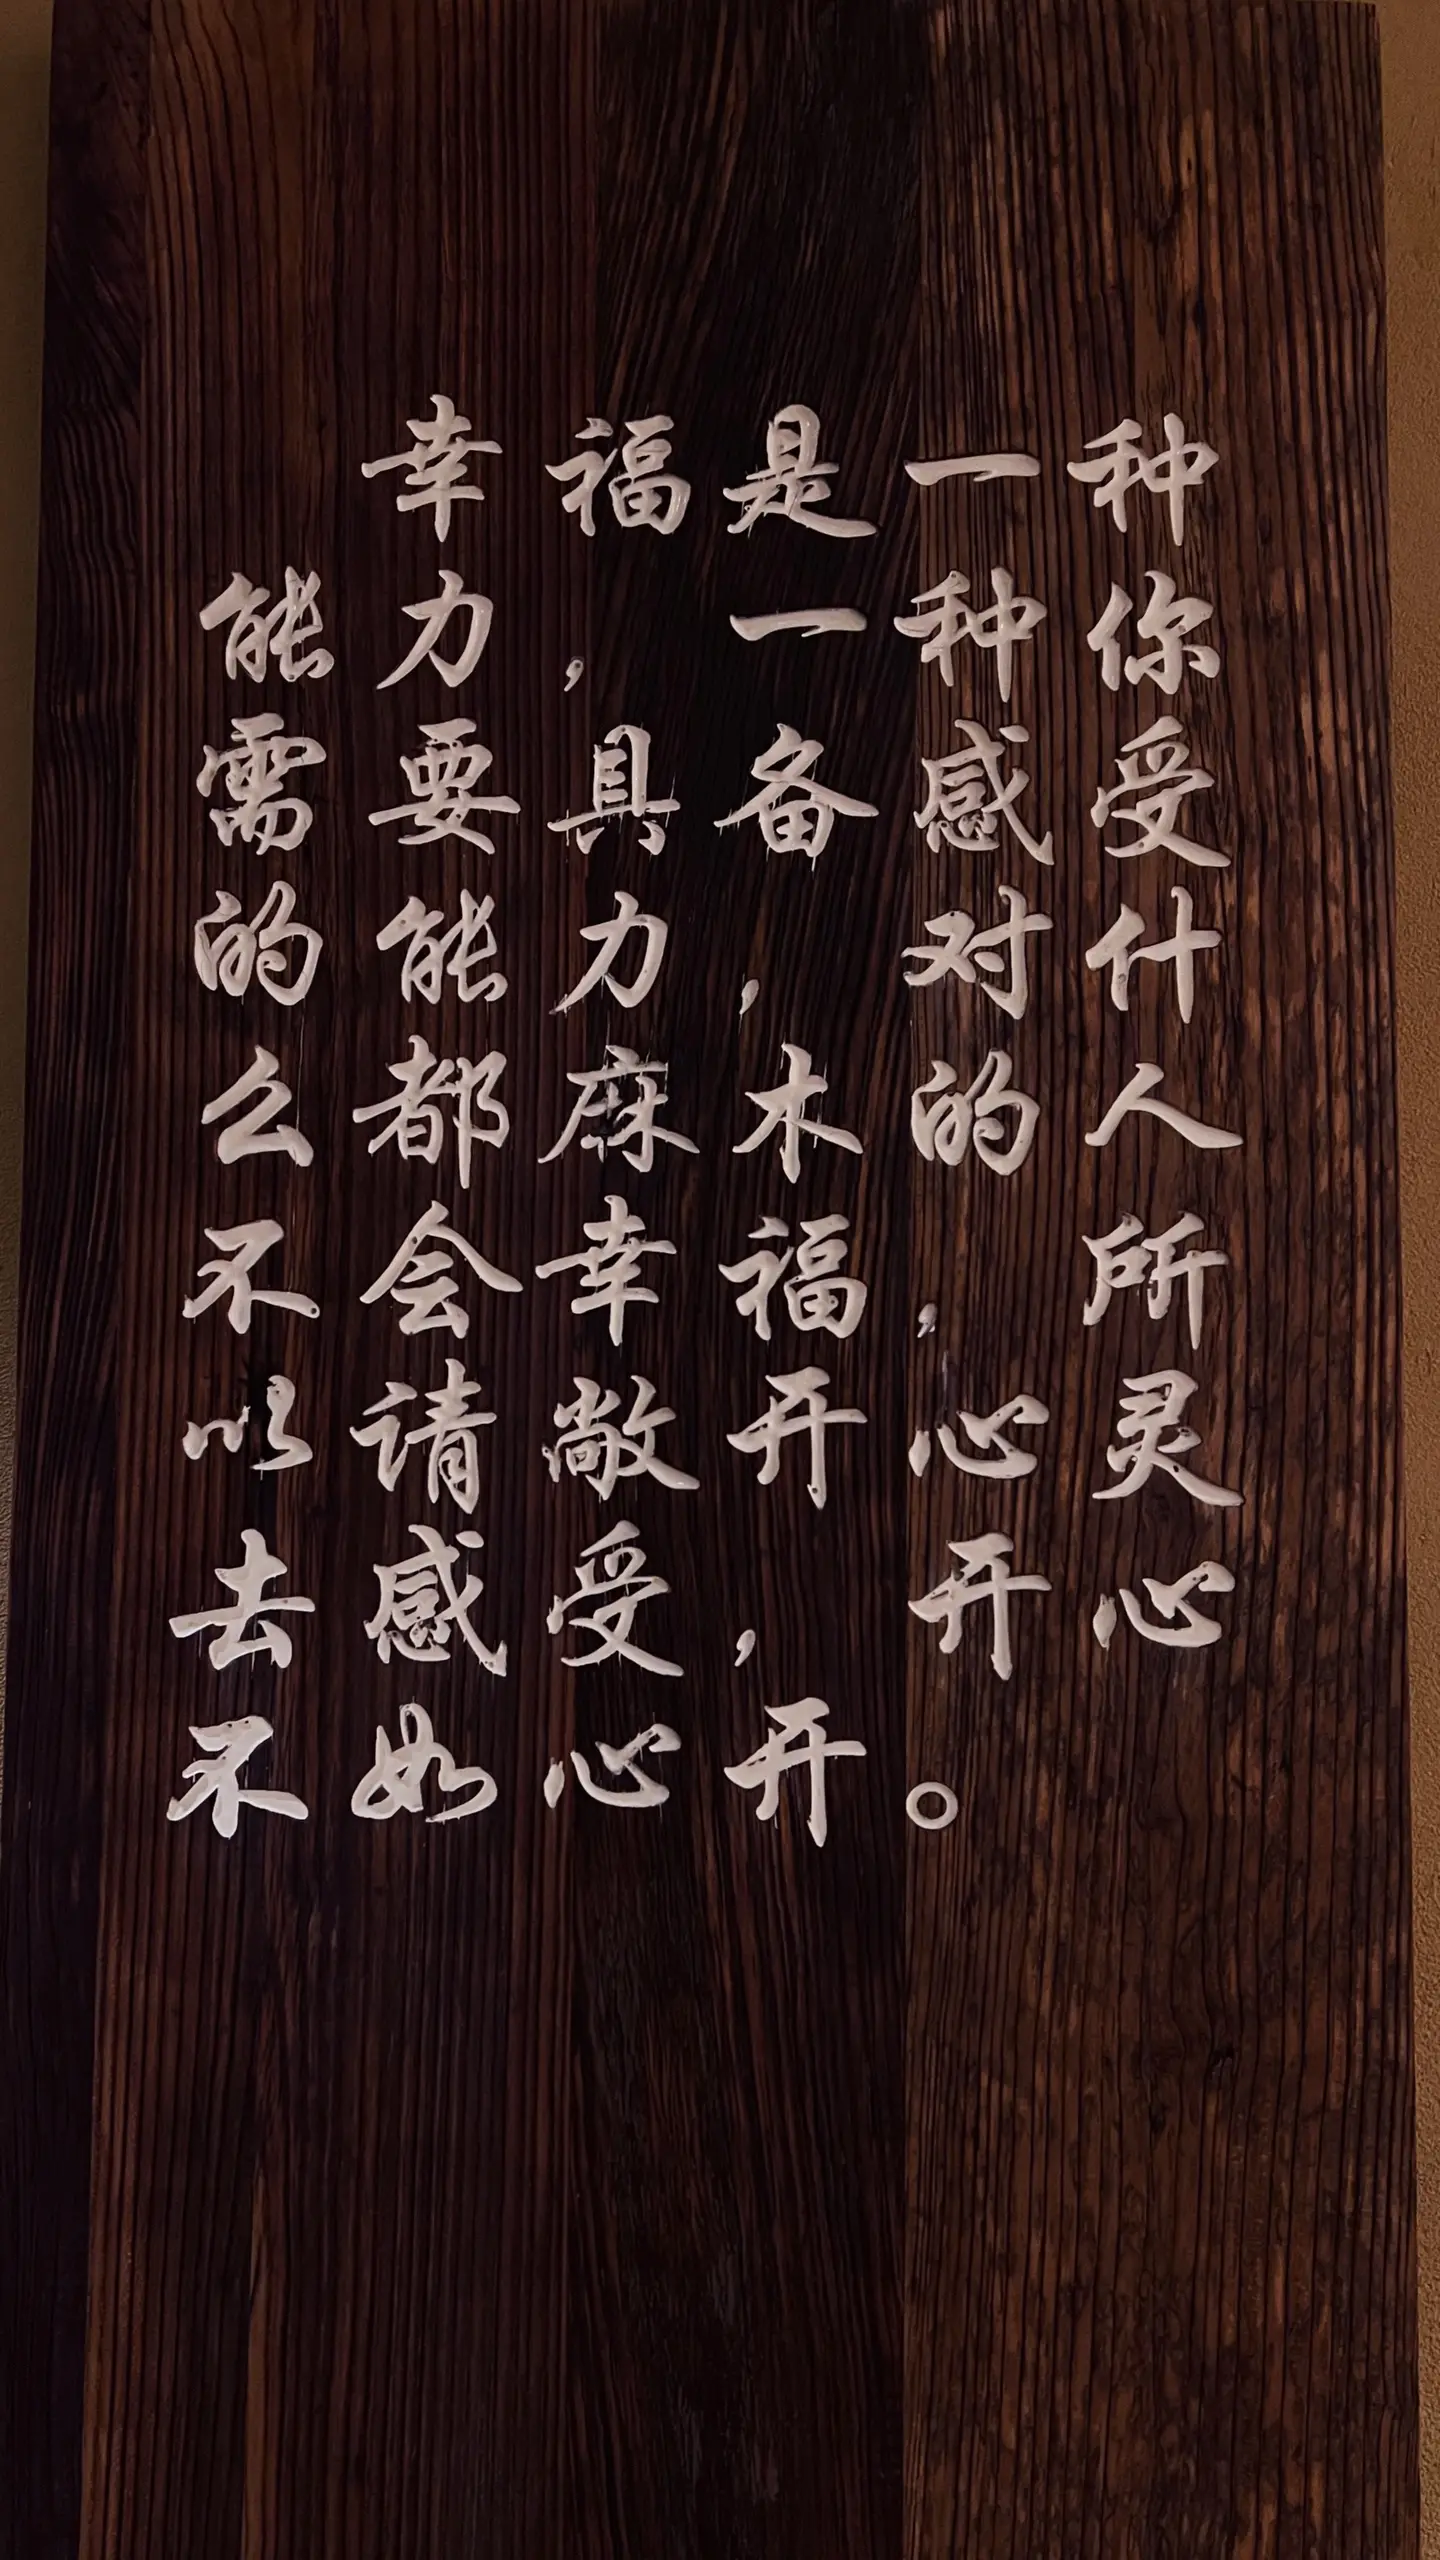 幸福是一种
能力，一种你
需要具备感受
的能力，对什
么都麻木的人
不会幸福，所
以请敞开心灵
去感受，开心
不如心开。